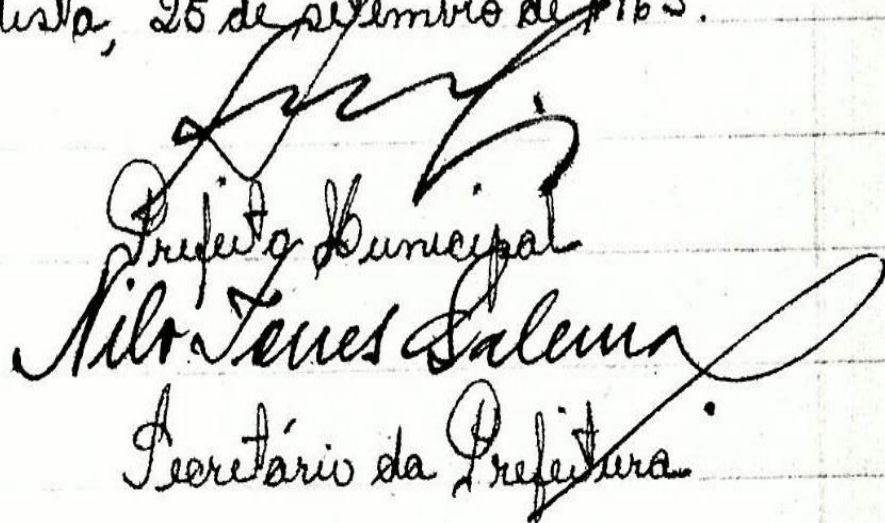 25 de setembro de 1963.
Prefeito Municipal
Nilo Torres Salema
Secretário da Prefeitura